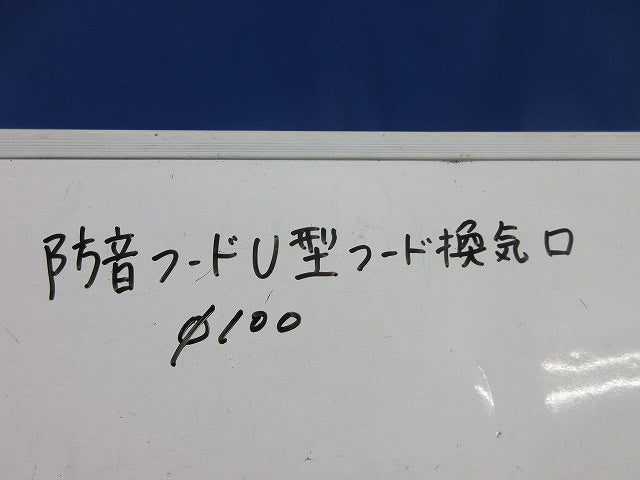 防音フードU型フード換気口
φ100